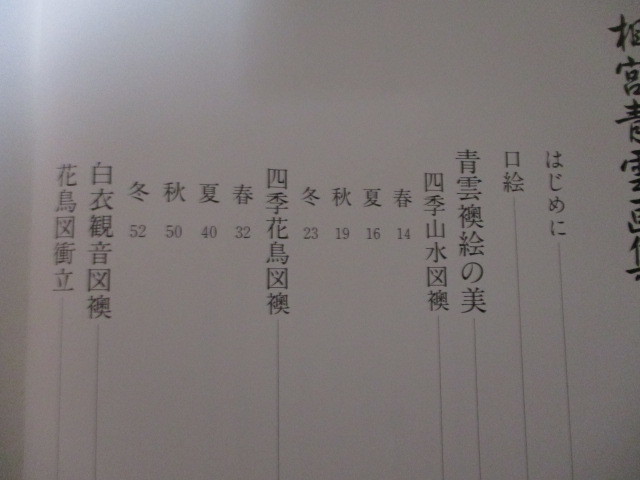 相宮青雲画集
はじめに
口絵
青雲襖絵の美
四季山水図襖
春 14
夏 16
秋 19
冬 23
四季花鳥図襖
春 32
夏 40
秋 50
冬 52
白衣観音図襖
花鳥図衝立